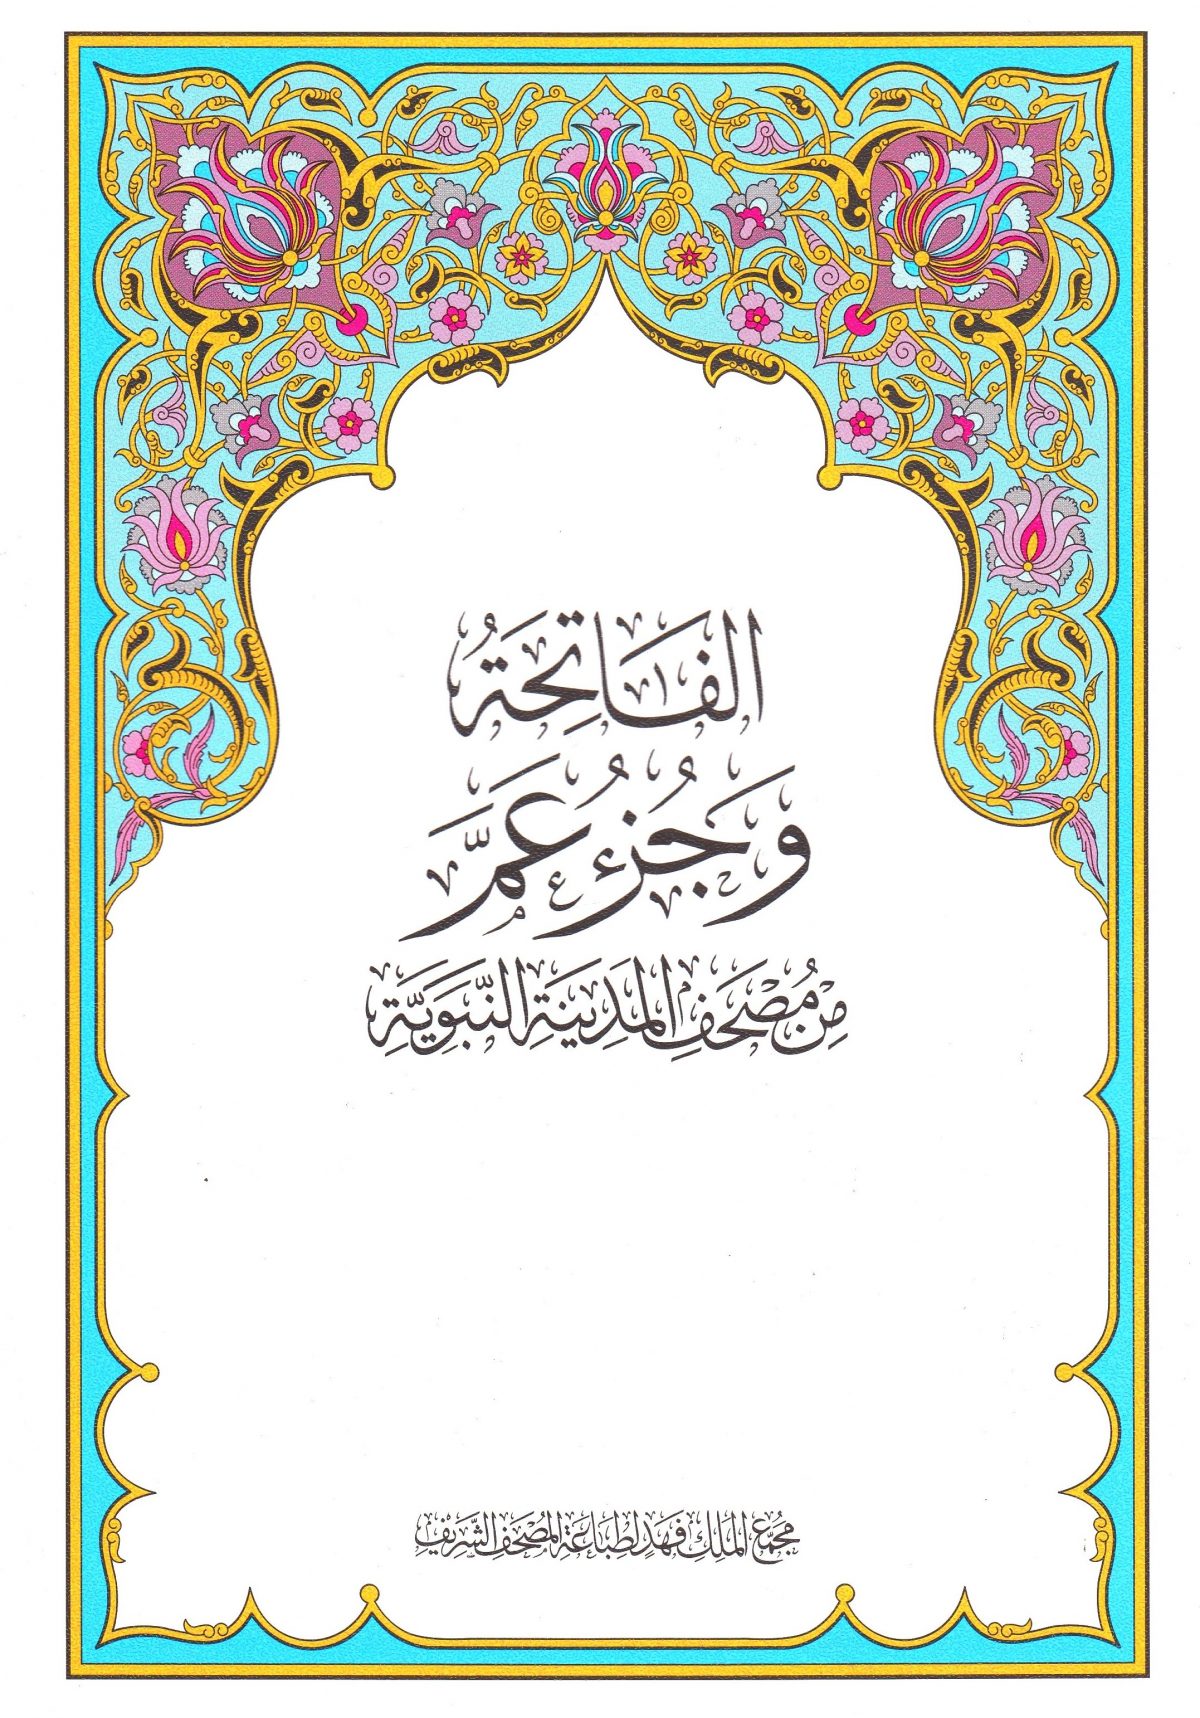 الفَاتِحَةُ
وَجُزْءُ عَمَّ
مِنْ مُصْحَفِ المَدِينَةِ النَّبَوِيَّةِ
مجمّع الملك فهد لطباعة المصحف الشريف